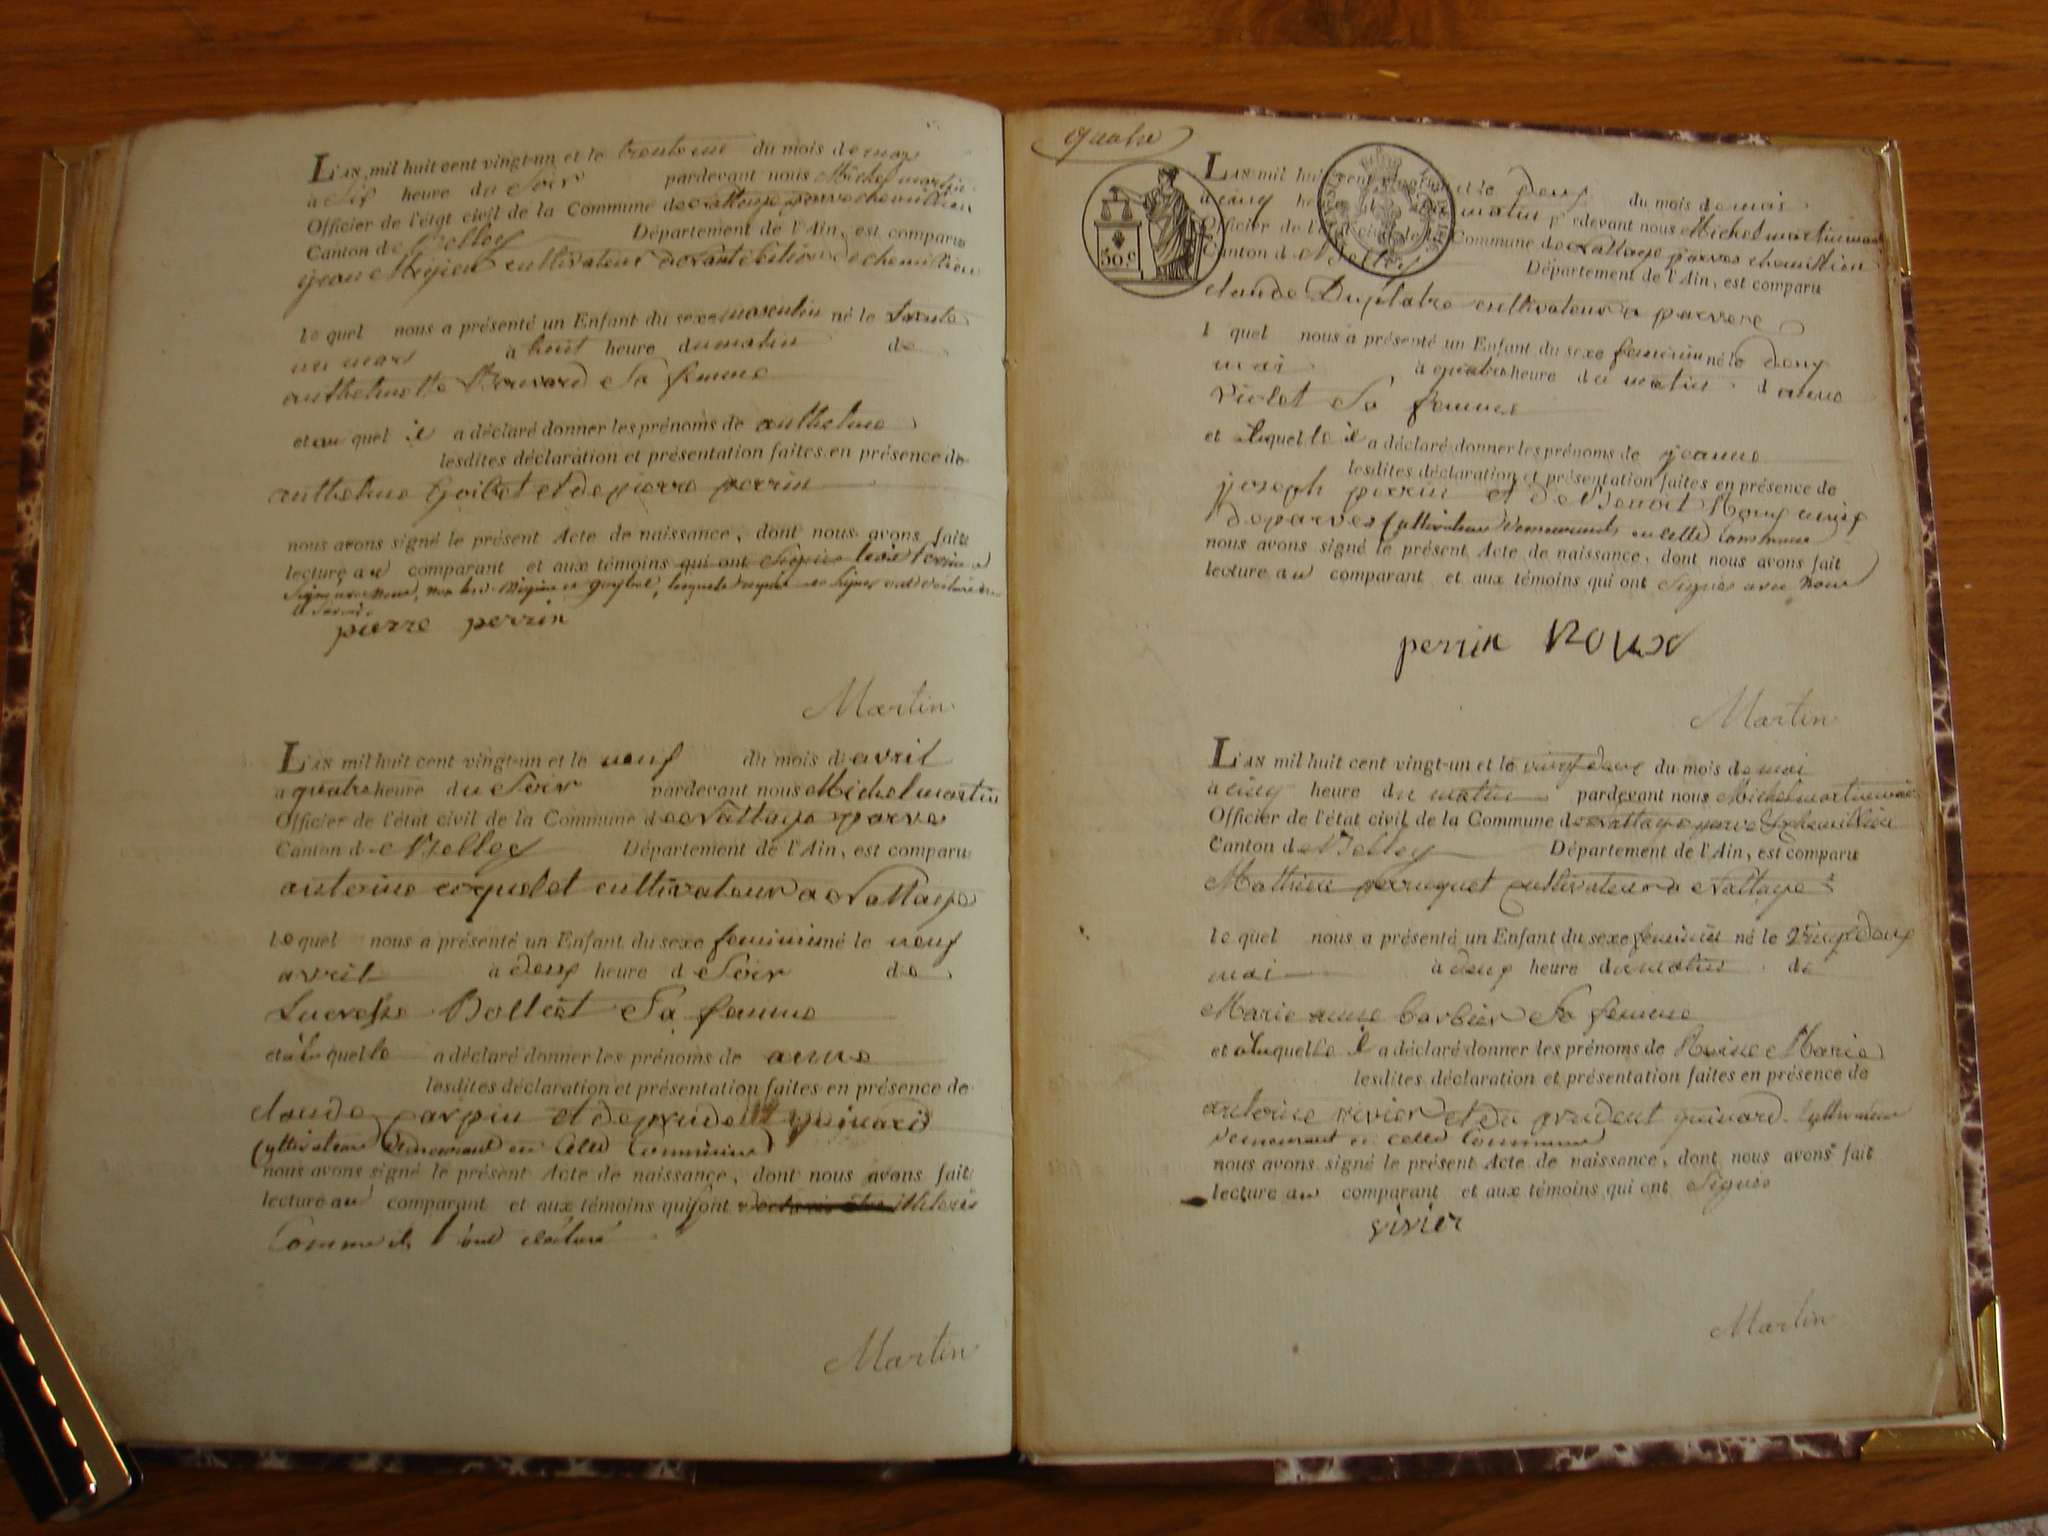 L'AN mil huit cent vingt-un et le trente un du mois de mars
à Six heure du Soir pardevant nous Michel martin
Officier de l'état civil de la Commune de Nattage parve chemillieu
Canton de Belley Département de l'Ain, est comparu
jean cultivateur de chemillieu
le quel nous a présenté un Enfant du sexe masculin né le trente
un mars à huit heure du matin de
anthelmette Bernard Sa femme
et au quel il a déclaré donner les prénoms de anthelme
lesdites déclaration et présentation faites en présence de
anthelme Goibet et de pierre perrin
nous avons signé le présent Acte de naissance, dont nous avons fait
lecture au comparant et aux témoins qui ont Signés
Signé avec nous, non les et lesquels requis de Signer ont déclaré ne
le Savoir.
pierre perrin
Martin
L'AN mil huit cent vingt-un et le neuf du mois d avril
a quatre heure du Soir pardevant nous Michel martin
Officier de l'état civil de la Commune de Nattage parve
Canton de Belley Département de l'Ain, est comparu
antoine coquelet cultivateur a Nattage
le quel nous a présenté un Enfant du sexe feminin né le neuf
avril à deux heure d Soir de
Lucresse Bolliet Sa femme
et à la quelle a déclaré donner les prénoms de anne
lesdites déclaration et présentation faites en présence de
claude carpin et de prudent quinard
Cultivateurs demeurant en Cette Commune
nous avons signé le présent Acte de naissance, dont nous avons fait
lecture au comparant et aux témoins qui sont illiterés
Comme ils l'ont déclaré
Martin
quatre
30.C
L'AN mil huit cent vingt-un et le deux du mois de mai
à cinq heure du matin pardevant nous Michel martin maire
Officier de l'état civil de la Commune de Nattage parves chemillieu
Canton de Belley Département de l'Ain, est comparu
claude Duplatre cultivateur a parves
l quel nous a présenté un Enfant du sexe feminin né le deux
mai à quatre heure du matin d anne
Violet Sa femme
et a laquelle il a déclaré donner les prénoms de jeanne
lesdites déclaration et présentation faites en présence de
joseph perrin et de Benoit Roux
de parves Cultivateurs demeurants en cette Commune
nous avons signé le présent Acte de naissance, dont nous avons fait
lecture au comparant et aux témoins qui ont Signés avec Nous
perrin Roux
Martin
L'AN mil huit cent vingt-un et le vingt deux du mois de mai
à cinq heure du matin pardevant nous Michel martin maire
Officier de l'état civil de la Commune de Nattage parve & chemillieu
Canton de Belley Département de l'Ain, est comparu
Mathieu perruquet cultivateur a Nattage
le quel nous a présenté un Enfant du sexe feminin né le Vingt deux
mai à deux heure du matin de
Marie anne barbier Sa femme
et a laquelle il a déclaré donner les prénoms de Reine Marie
lesdites déclaration et présentation faites en présence de
antoine vivier et du prudent quinard Cultivateurs
demeurant en cette Commune
nous avons signé le présent Acte de naissance, dont nous avons fait
lecture au comparant et aux témoins qui ont Signés
vivier
Martin